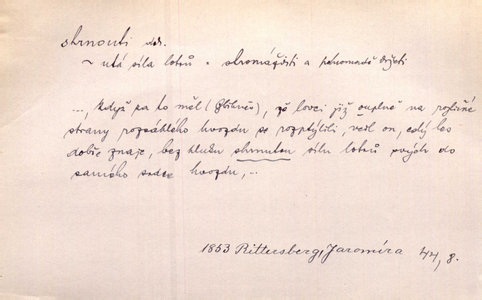 shrnouti dok.
~ utá síla lotrů = shromážditi a pohromadě držeti
..., když za to měl (Zbihněv), že lovci již ouplně na rozličné
strany rozsáhlého hvozdu se rozptýlili, vedl on, celý les
dobře znaje, bez hluku shrnutou sílu lotrů svých do
samého srdce hvozdu, ...
1853 Rittersberg, Jaromíra 44, 8.